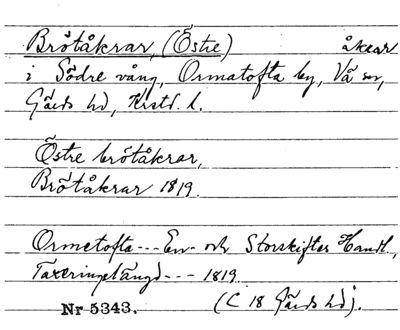 Brötåkrar, (Östre) åkrar
i Södre vång, Ormatofta by, Vä sn,
Gärds hd, Krstd. l.
Östre brötåkrar,
Brötåkrar 1819.
Ormetofta--- En- och Storskiftes Handl.,
Taxeringslängd--- 1819
Nr 5343. (C 18 Gärds hd).